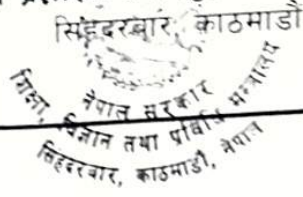 सिंहदरबार, काठमाडौं
नेपाल सरकार
शिक्षा, विज्ञान तथा प्रविधि मन्त्रालय
सिंहदरबार, काठमाडौं, नेपाल